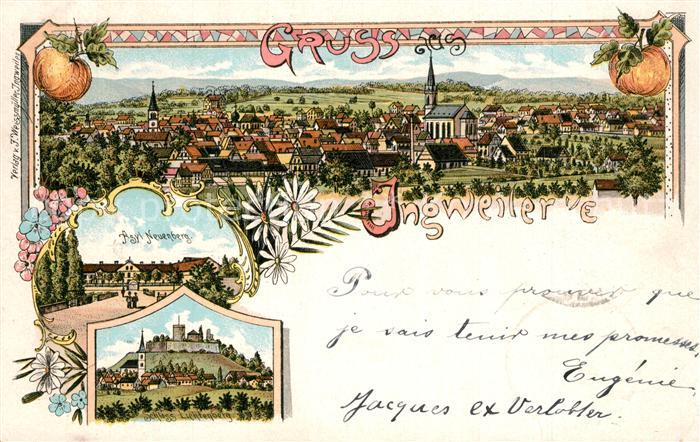 GRUSS aus
Verlag v. J. Weissmüller, Ingweiler
INGWEILER i/E
Asyl Neuenberg.
Schloss Lichtenberg.
Pour vous prouver que
je sais tenir mes promesses.
Eugénie
Jacques ex Verlobter.